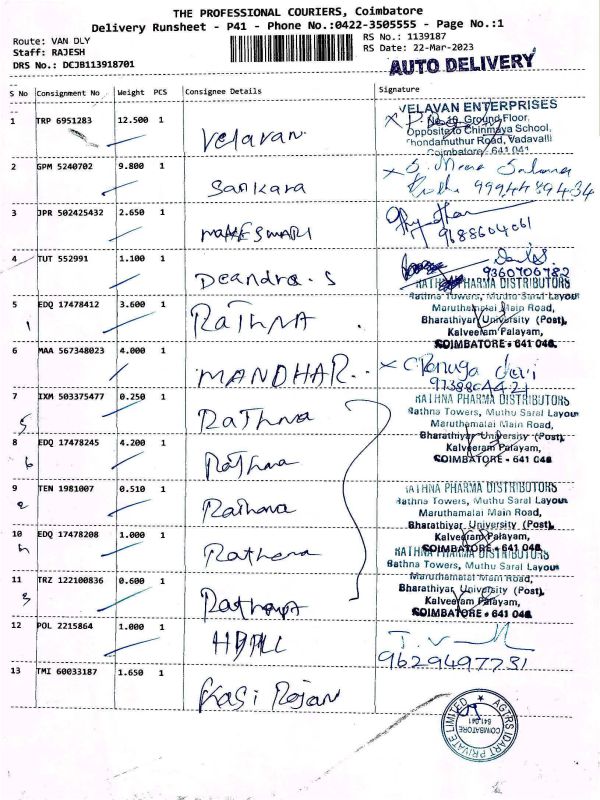 THE PROFESSIONAL COURIERS, Coimbatore
Delivery Runsheet - P41 - Phone No.:0422-3505555 - Page No.:1
Route: VAN DLY
Staff: RAJESH
DRS No.: DCJB113918701
RS No.: 1139187
RS Date: 22-Mar-2023
AUTO DELIVERY
S No Consignment No Weight PCS Consignee Details Signature
1 TRP 6951283 12.500 1 Velavan
VELAVAN ENTERPRISES
No. Ground Floor,
Opposite to Chinmaya School,
Thondamuthur Road, Vadavalli
Coimbatore - 641 041
2 GPM 5240702 9.800 1 Sankara
S. Meena
3 JPR 502425432 2.650 1 MAHESWARI
9688604061
4 TUT 552991 1.100 1 Deandra. S
9360706782
5 EDQ 17478412 3.600 1 RATHNA
1
RATHNA PHARMA DISTRIBUTORS
Rathna Towers, Muthu Saral Layout
Maruthamalai Main Road,
Bharathiyar University (Post),
Kalveeram Palayam,
COIMBATORE - 641 046.
6 MAA 567348023 4.000 1 MANDHAR..
Renuga devi
7 IXM 503375477 0.250 1 Rathna
5
RATHNA PHARMA DISTRIBUTORS
Rathna Towers, Muthu Saral Layout
Maruthamalai Main Road,
Bharathiyar University (Post),
Kalveeram Palayam,
COIMBATORE - 641 046
8 EDQ 17478245 4.200 1 Rathna
6
9 TEN 1981007 0.510 1 Rathna
2
RATHNA PHARMA DISTRIBUTORS
Rathna Towers, Muthu Saral Layout
Maruthamalai Main Road,
Bharathiyar University (Post),
Kalveeram Palayam,
COIMBATORE - 641 046
10 EDQ 17478208 1.000 1 Rathna
4
RATHNA PHARMA DISTRIBUTORS
Rathna Towers, Muthu Saral Layout
Maruthamalai Main Road,
Bharathiyar University (Post),
Kalveeram Palayam,
COIMBATORE - 641 046
11 TRZ 122100836 0.600 1 Rathna
3
12 POL 2215864 1.000 1
9629497731
13 TMI 60033187 1.650 1 Kasi Rajan
AGTRS IDART PRIVATE LIMITED
COIMBATORE
641 041